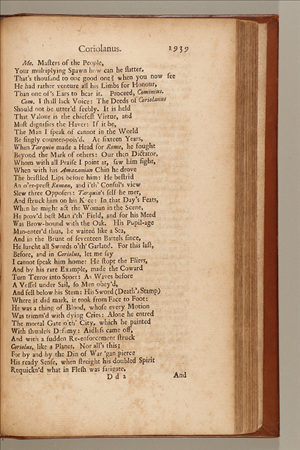 Coriolanus. 1939
Me. Masters of the People,
Your multiplying Spawn how can he flatter,
That's thousand to one good one? when you now see
He had rather venture all his Limbs for Honour,
Than one of's Ears to hear it. Proceed, Cominius.
Com. I shall lack Voice: The Deeds of Coriolanus
Should not be utter'd feebly. It is held
That Valour is the chiefest Virtue, and
Most dignifies the Haver: If it be,
The Man I speak of cannot in the World
Be singly counter-pois'd. At sixteen Years,
When Tarquin made a Head for Rome, he fought
Beyond the Mark of others: Our then Dictator,
Whom with all Praise I point at, saw him fight,
When with his Amazonian Chin he drove
The bristled Lips before him: He bestrid
An o'er-prest Roman, and i'th' Consul's view
Slew three Opposers: Tarquin's self he met,
And struck him on his Knee: In that Day's Feats,
When he might act the Woman in the Scene,
He prov'd best Man i'th' Field, and for his Meed
Was Brow-bound with the Oak. His Pupil-age
Man-enter'd thus, he waited like a Sea,
And in the Brunt of seventeen Battels since,
He lurcht all Swords o'th' Garland. For this last,
Before, and in Coriolus, let me say
I cannot speak him home: He stopt the Fliers,
And by his rare Example, made the Coward
Turn Terror into Sport: As Waves before
A Vessel under Sail, so Men obey'd,
And fell below his Stem: His Sword (Death's Stamp)
Where it did mark, it took from Face to Foot:
He was a thing of Blood, whose every Motion
Was trimm'd with dying Cries: Alone he entred
The mortal Gate o'th' City, which he painted
With shunless Destiny: Aidless came off,
And with a sudden Re-enforcement struck
Coriolus, like a Planet. Nor all's this;
For by and by the Din of War 'gan pierce
His ready Sense, when streight his doubled Spirit
Requickn'd what in Flesh was fatigate,
D d 2 And